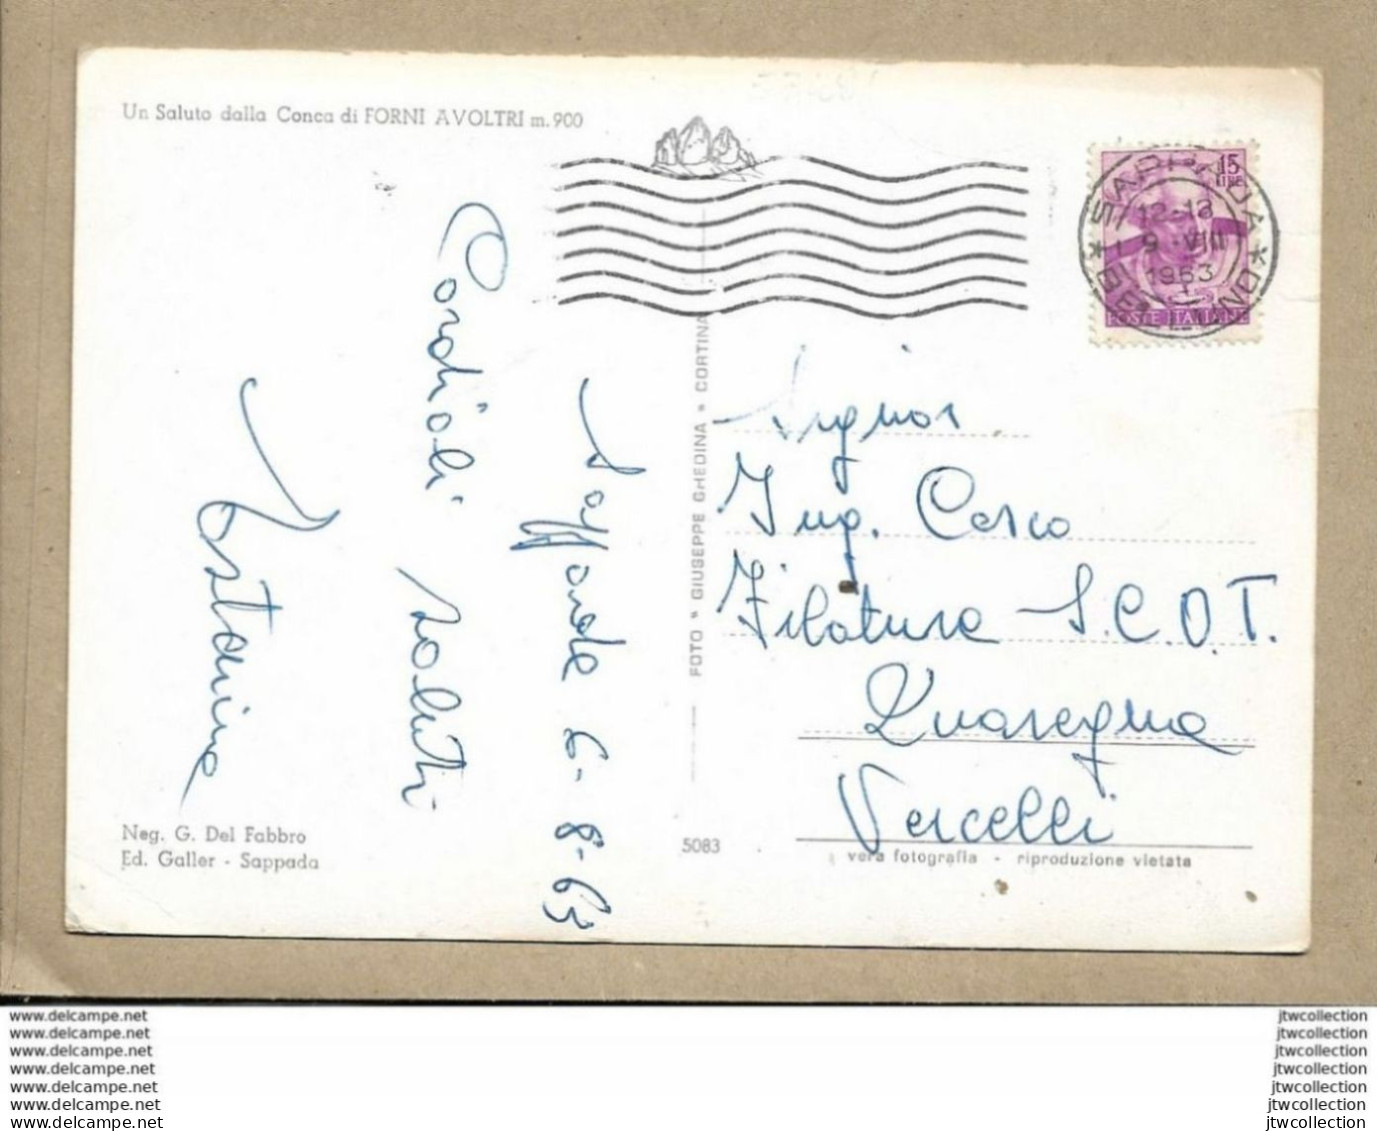 Un Saluto dalla Conca di FORNI AVOLTRI m. 900
Cordiali
saluti
Sappada 6-8-63
Neg. G. Del Fabbro
Ed. Galler - Sappada
FOTO * GIUSEPPE GHEDINA * CORTINA
5083
15
LIRE
POSTE ITALIANE
* SAPPADA * BELLUNO
12-13
9 VIII
1963
Signor
Ing. Casco
Filatura S.C.O.T.
Quaregna
Vercelli
vera fotografia - riproduzione vietata
www.delcampe.net
www.delcampe.net
www.delcampe.net
www.delcampe.net
www.delcampe.net
www.delcampe.net
www.delcampe.net
jtwcollection
jtwcollection
jtwcollection
jtwcollection
jtwcollection
jtwcollection
jtwcollection